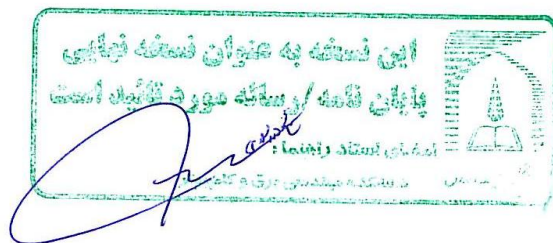 این نسخه به عنوان نسخه نهایی
پایان نامه / رساله مورد تائید است
امضاء استاد راهنما :
دانشکده مهندسی برق و کامپیوتر